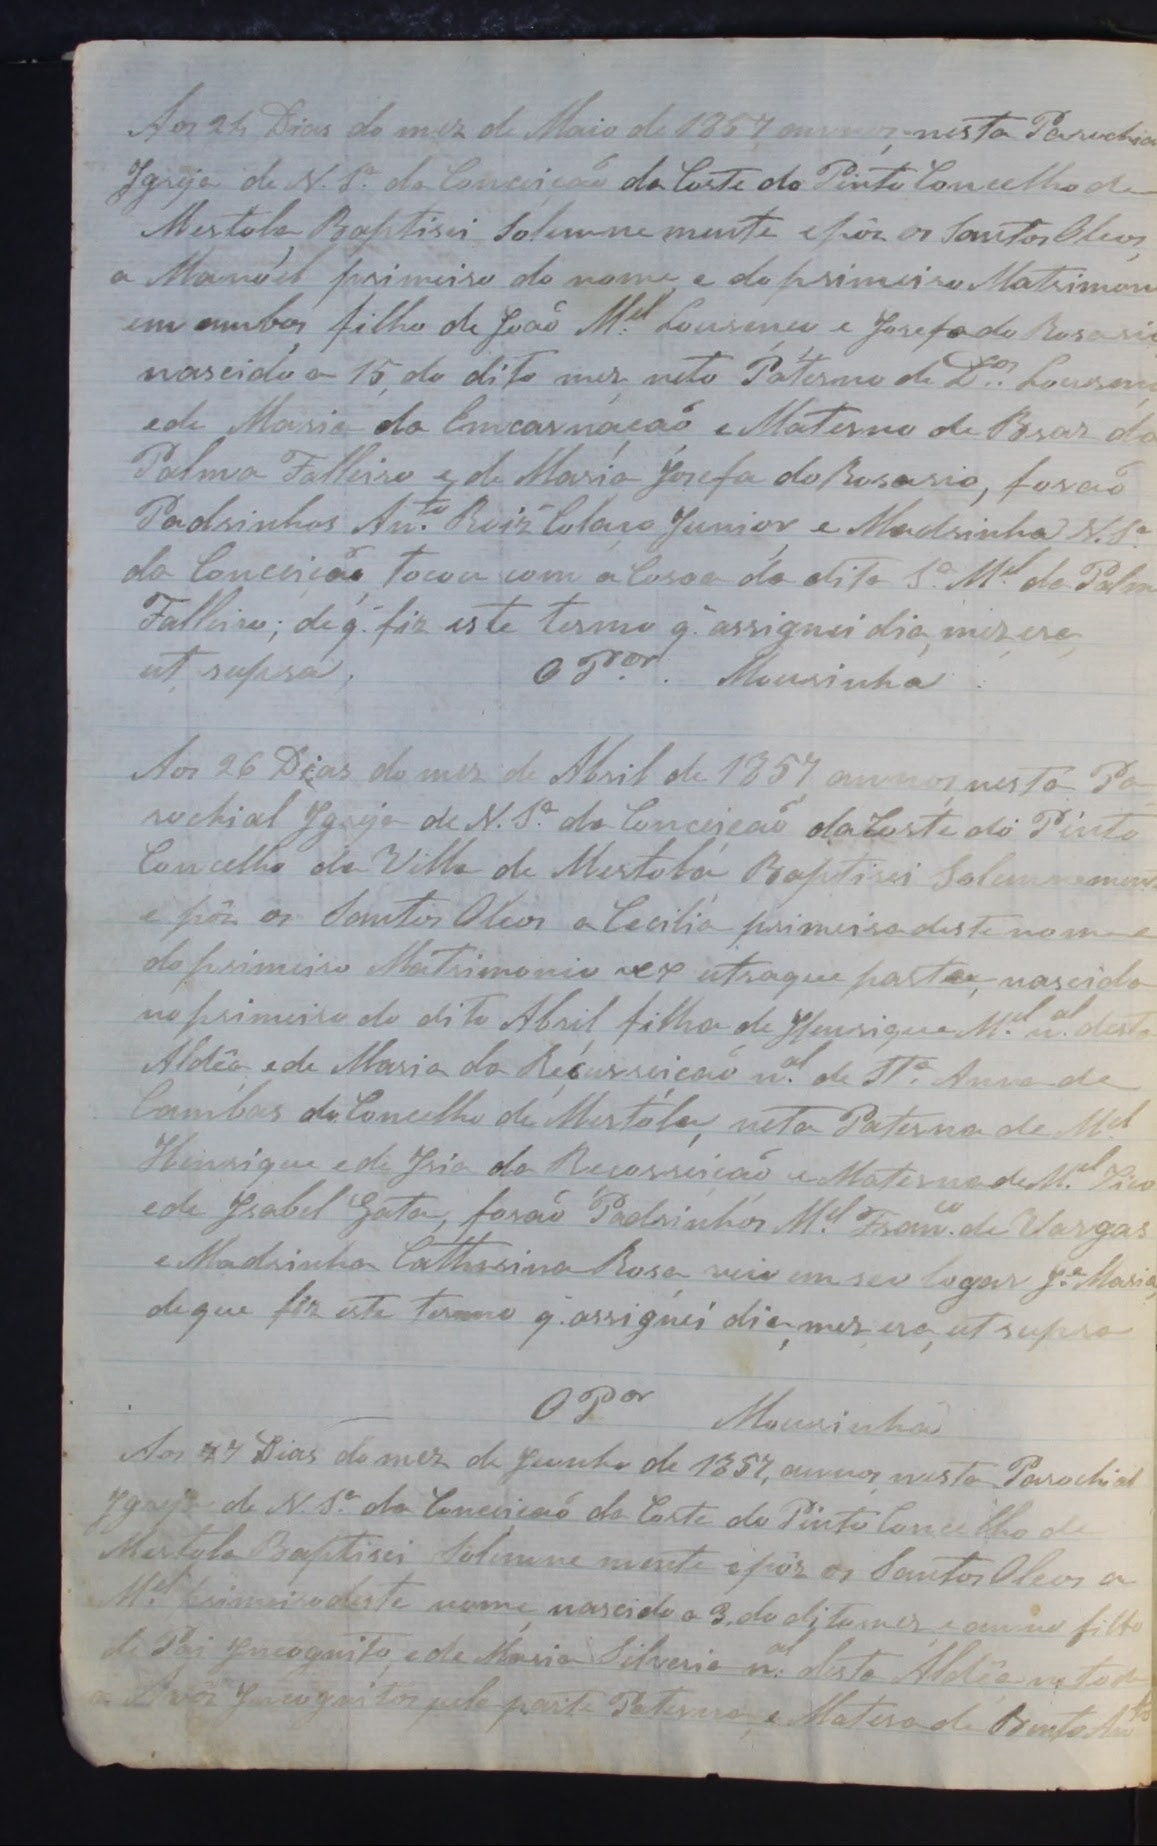 Aos 24 Dias do mez de Maio de 1857, annos, nesta Parochia
Igreja de N. Sª. da Conceiçaõ da Corte do Pinto Concelho de
Mertola Baptisei Solemnemente e pôz os Santos Oleos
a Manoel primeiro do nome, e do primeiro Matrimon
em ambos, filho de Joaõ M.el Lourenco e Josefa do Rosario
nascido a 15, do dito mez neto Paterno de D.os Lourenco
e de Maria da Emcarnaçaõ e Materno de Braz da
Palma Falleiro e de Maria Josefa do Rosario, foraõ
Padrinhos An.to Roiz Colaço Junior e Madrinha N. Sª
da Conceição, tocou com a Coroa da dita Sª. M.el da Palm
Falleiro; de q. fiz este termo q. assignei dia, mez, era,
ut supra,
O P.or. Mousinho
Aos 26 Dias do mez de Abril de 1857, annos, nesta Pa
rochial Igreja de N. Sª. da Conceiçaõ da Corte do Pinto
Concelho da Villa de Mertola Baptisei Solemnement
e pôz os Santos Oleos a Cecilia primeira deste nome e
do primeiro Matrimonio ex utraque parte, nascida
no primeiro do dito Abril, filha de Henrique M.el n.al desta
Aldêa, e de Maria da Recurreicaõ n.al de Stª. Anna de
Cambas do Concelho de Mertola, neta Paterna de M.el
Henrique e de Iria da Recorreicaõ e Materna de M.el
e de Isabel Gata, foraõ Padrinhos M.el Fran.co de Vargas
e Madrinha Catharina Rosa veio em seo logar J.ª Maria,
de que fiz este termo q. assignei dia, mez, era, ut supra
O P.or Mousinho
Aos 27 Dias do mez de Junho de 1857, annos, nesta Parochial
Igreja de N. Sª. da Conceicaõ da Corte do Pinto Concelho de
Mertola Baptisei Solemne mente e pôz os Santos Oleos a
M.el primeiro deste nome, nascido a 3, do dito mez e anno filho
de Pai Incognito, e de Maria Silveria n.al desta Aldêa neto de
Avós Incognitos pela parte Paterna, e Matera de Bento An.to